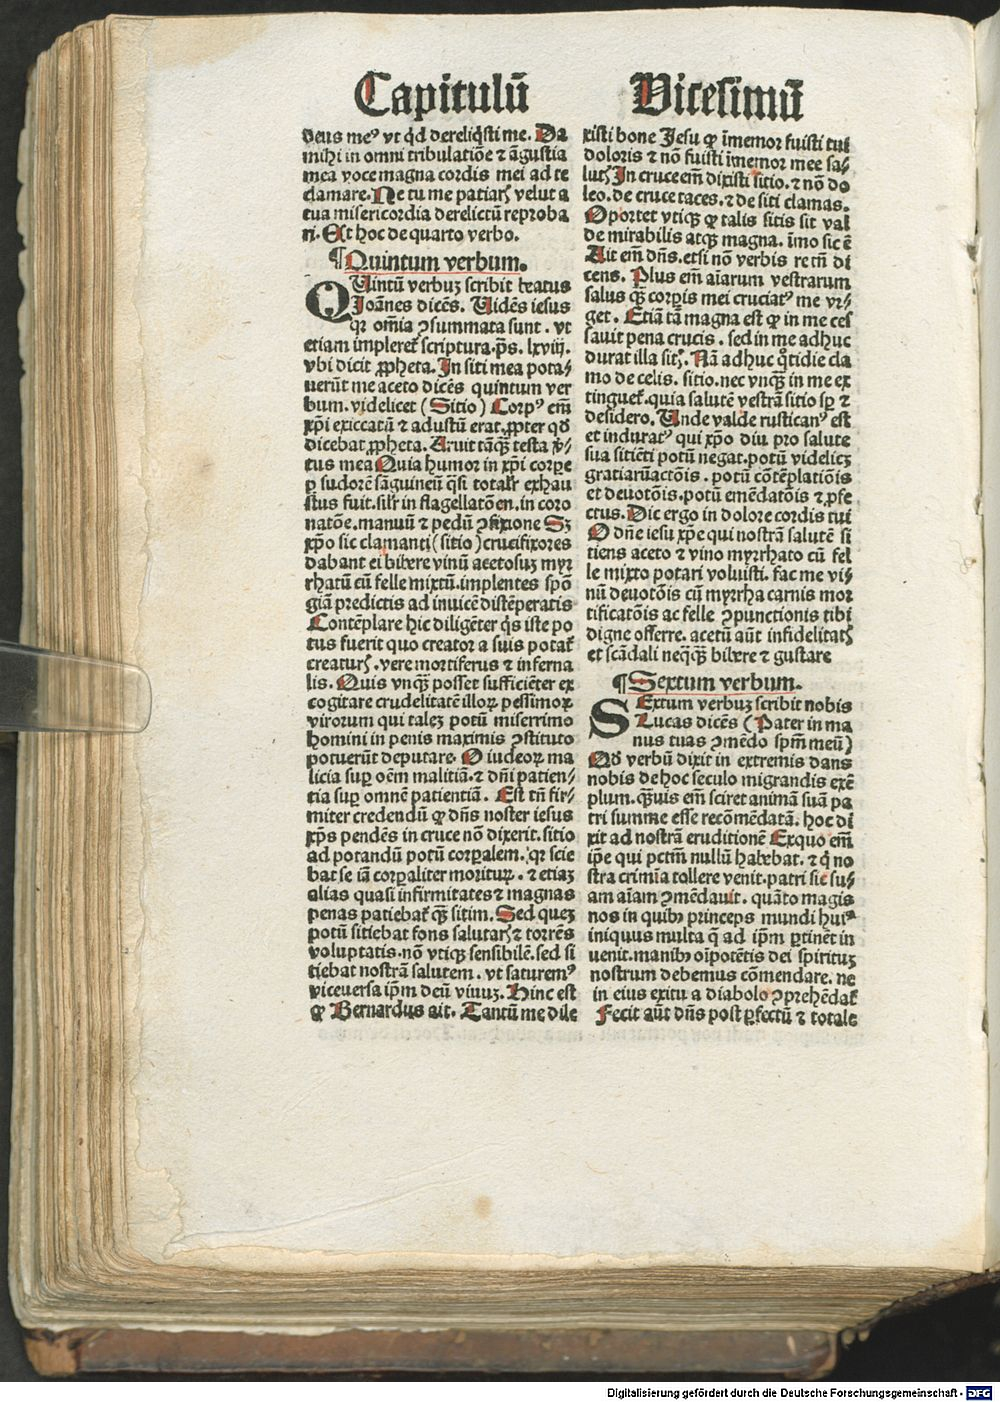 Capitulū Vicesimū
deus meꝰ vt qͥd dereliqͥsti me. Da
mihi in omni tribulatiōe ⁊ āgustia
mea voce magna cordis mei ad te
clamare. Ne tu me patiarꝭ velut a
tua misericordia derelictū reproba
ri. Et hoc de quarto verbo.
¶ Quintum verbum.
QUintū verbuꝫ scribit beatus
Joānes dicēs. Uidēs iesus
qꝛ oīa ꝯsummata sunt. vt
etiam impleret᷑ scriptura. ps. lxviij.
vbi dicit ꝓpheta. In siti mea pota⸗
uerūt me aceto dicēs quintum ver
bum. videlicet (Sitio) Corpꝰ em̄
xp̄i exiccatū ⁊ adustū erat. ꝓpter qd̄
dicebat ꝓpheta. Aruit tāqꝫ testa v̓⸗
tus mea Quia humor in xp̄i corpe
ꝑ sudorē sāguineū qͣsi totalr̓ exhau
stus fuit. silr̓ in flagellatōen. in coro
natōe. manuū ⁊ pedū ꝯfixione Sꝫ
xp̄o sic clamanti (sitio) crucifixores
dabant ei bibere vinū acetosuꝫ myr
rhatū cū felle mixtū. implentes spō
giā predictis ad inuicē distēperatis
Contēplare hic diligēter qͥs iste po
tus fuerit quo creator a suis potat᷑
creaturꝭ. vere mortiferus ⁊ inferna
lis. Quis vnqꝫ posset sufficiēter ex
cogitare crudelitatē illoꝝ pessimoꝝ
virorum qui taleꝫ potū miserrimo
homini in penis maximis ꝯstituto
potuerūt deputare. O iudeoꝝ ma
licia suꝑ oēm malitiā. ⁊ dn̄i patien⸗
tia suꝑ omnē patientiā. Est tn̄ fir⸗
miter credendū ꝙ dn̄s noster iesus
xp̄s pendēs in cruce nō dixerit. sitio
ad potandū potū corꝑalem. qꝛ scie
bat se iā corꝑaliter moriturꝝ. ⁊ etiaꝫ
alias quasi infirmitates ⁊ magnas
penas patiebat᷑ qꝫ sitim. Sed queꝫ
potū sitiebat fons salutarꝭ ⁊ torrēs
voluptatis. nō vtiqꝫ sensibilē. sed si
tiebat nostrā salutem. vt saturemꝰ
viceversa ip̄m deū viuuꝫ. Hinc est
ꝙ Bernardus ait. Tantū me dile
xisti bone Jesu ꝙ īmemor fuisti tui
doloris ⁊ nō fuisti īmemor mee sa⸗
lutꝭ In cruce em̄ dixisti sitio. ⁊ nō do
leo. de cruce taces. ⁊ de siti clamas.
Oportet vtiqꝫ ꝙ talis sitis sit val
de mirabilis atqꝫ magna. īmo sic ē
Ait em̄ dn̄s. etsi nō verbis re tn̄ di
cens. Plus em̄ aīarum vestrarum
salus qꝫ corꝑis mei cruciatꝰ me vr⸗
get. Etiā tā magna est ꝙ in me ces
sauit pena crucis. sed in me adhuc
durat illa sitꝭ. Nā adhuc qͦtidie cla
mo de celis. sitio. nec vnqꝫ in me ex
tinguet᷑. quia salutē vestrā sitio sp̄ ⁊
desidero. Unde valde rusticanꝰ est
et induratꝰ qui xp̄o diu pro salute
sua sitiēti potū negat. potū videlicꝫ
gratiarūactōis. potū cōtēplatiōis
et deuotōis. potū emēdatōis ⁊ ꝓfe
ctus. Dic ergo in dolore cordis tui
O dn̄e iesu xp̄e qui nostrā salutē si
tiens aceto ⁊ vino myrrhato cū fel
le mixto potari voluisti. fac me vi⸗
nū deuotōis cū myrrha carnis mor
tificatōis ac felle ꝯpunctionis tibi
digne offerre. acetū aūt infidelitatꝭ
et scādali neqͣqꝫ bibere ⁊ gustare
¶ Sextum verbum.
SExtum verbuꝫ scribit nobis
Lucas dicēs (Pater in ma
nus tuas ꝯmēdo spm̄ meū)
Qd̄ verbū dixit in extremis dans
nobis de hoc seculo migrandis exē
plum. qͣuis em̄ sciret animā suā pa
tri summe esse recōmēdatā. hoc di
xit ad nostrā eruditionē Exquo em̄
ip̄e qui pctm̄ nullū habebat. ⁊ qͥ no
stra crimīa tollere venit. patri sic su⸗
am aīam ꝯmēdauit. quāto magis
nos in quibꝰ princeps mundi huiꝰ
iniquus multa q̄ ad ip̄m ꝑtinēt in
uenit. manibꝰ oīpotētis dei spirituꝫ
nostrum debemus cōmendare. ne
in eius exitu a diabolo ꝯprehēdat᷑
Fecit aūt dn̄s post ꝑfectū ⁊ totale
Digitalisierung gefördert durch die Deutsche Forschungsgemeinschaft - DFG